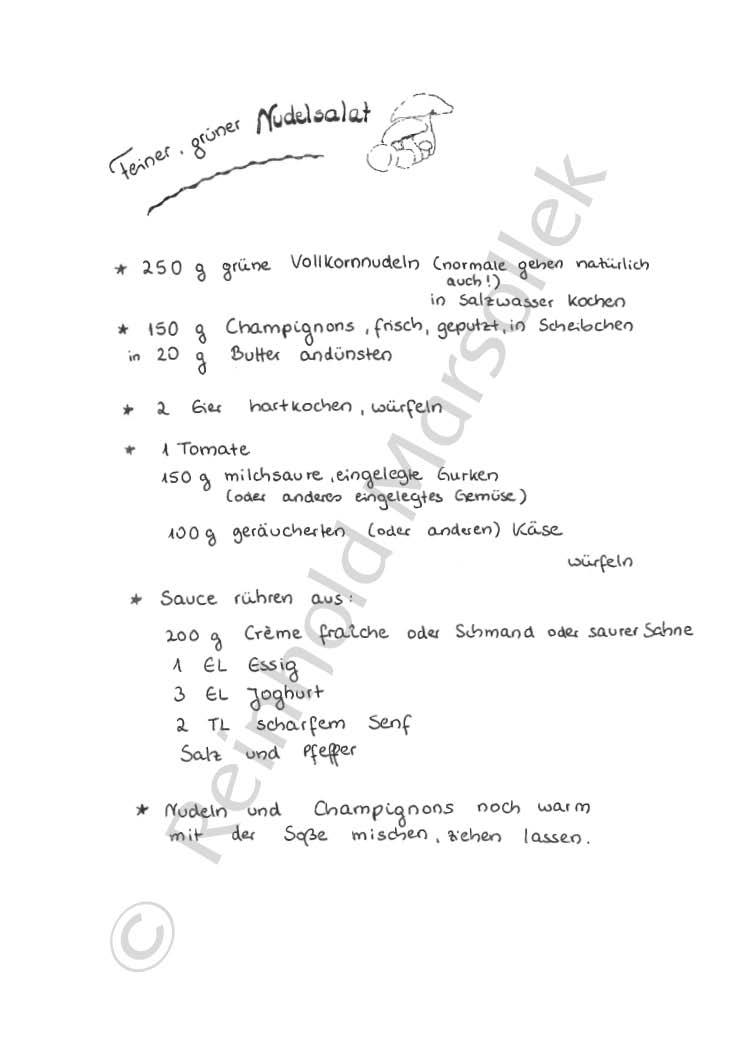 Feiner, grüner Nudelsalat
* 250 g grüne Vollkornnudeln (normale gehen natürlich
auch!)
in Salzwasser kochen
* 150 g Champignons, frisch, geputzt, in Scheibchen
in 20 g Butter andünsten
* 2 Eier hartkochen, würfeln
* 1 Tomate
150 g milchsaure, eingelegte Gurken
(oder anderes eingelegtes Gemüse)
100 g geräucherten (oder anderen) Käse
würfeln
* Sauce rühren aus:
200 g Crème fraîche oder Schmand oder saurer Sahne
1 EL Essig
3 EL Joghurt
2 TL scharfem Senf
Salz und Pfeffer
* Nudeln und Champignons noch warm
mit der Soße mischen, ziehen lassen.
© Reinhold Marsollek